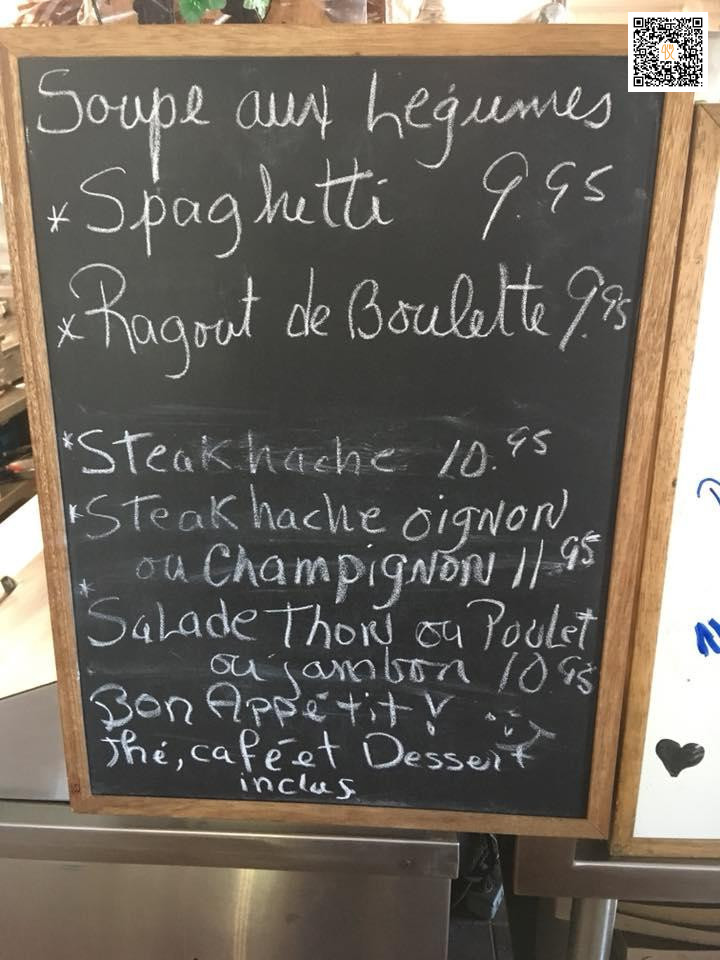 Soupe aux Légumes
* Spaghetti 9.95
* Ragout de Boulette 9.95
* Steak hache 10.95
* Steak hache oignon
ou Champignon 11.95
* Salade Thon ou Poulet
ou jambon 10 95
Bon Appétit!
Thé, café et Dessert
inclus